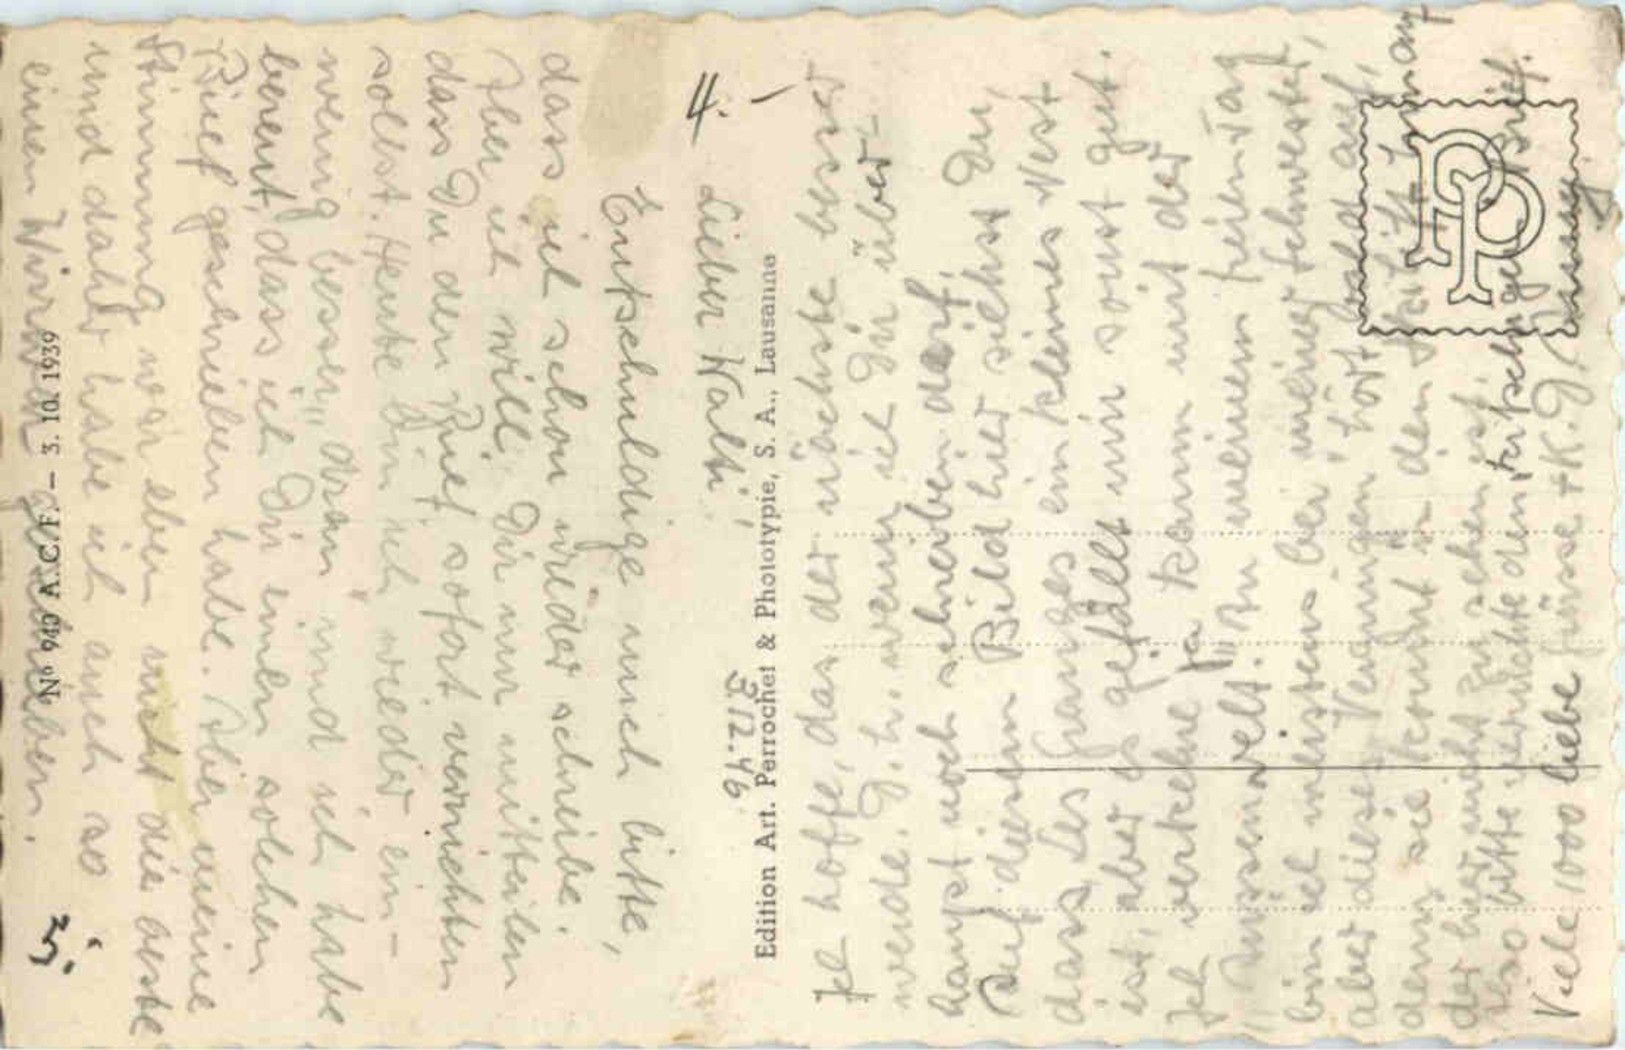 4.-
Lieber Walti!
Entschuldige mich bitte,
dass ich schon wieder schreibe.
Aber ich will Dir nur mitteilen
dass Du den Brief sofort vernichten
sollst. Heute bin ich wieder ein-
wenig besser „dran" und ich habe
bereut, dass ich Dir einen solchen
Brief geschrieben habe. Aber meine
Stimmung war eben nicht die beste
und daher habe ich auch so
einen geschrieben.
5.-
3.12.46
Edition Art. Perrochet & Phototypie, S. A., Lausanne
Nº 940 A.C.F. – 3. 10. 1939
Ich hoffe, das der nächste besser
werde. D. h. wenn ich Dir über-
haupt noch schreiben darf.
Auf diesem Bild hier siehst Du,
dass Les ganzes ein kleines Nest
ist, aber es gefällt mir sonst gut.
Ich verkehre ja kaum mit der
„Aussenwelt." An meinem freien Tag
bin ich meistens bei meiner Schwester,
aber dieses Vergnügen hört bald auf,
denn sie kommt in den
der hier nicht zu sehen ist.
Also bitte vernichte den
Viele 1000 liebe Grüsse + K.
PP